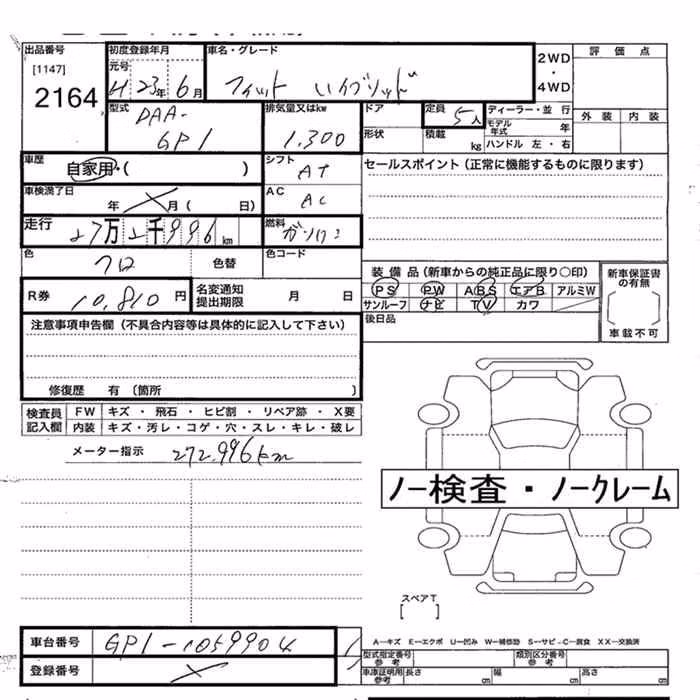 出品番号
[1147]
2164
初度登録年月
元号
H 23年 6月
車名・グレード
フィット ハイブリッド
2WD
・
4WD
評価点
外装 内装
型式
DAA-
GP1
排気量又はkw
1,300
ドア
形状
定員
5人
積載
kg
ディーラー・並行
モデル年式 年
ハンドル 左・右
車歴
自家用・( )
シフト
AT
セールスポイント(正常に機能するものに限ります)
車検満了日
年 月( 日)
AC
AC
走行
27万2千996km
燃料
ガソリン
色
クロ
色替
色コード
装備品(新車からの純正品に限り○印)
PS PW ABS エアB アルミW
サンルーフ ナビ TV カワ
新車保証書の有無
車載不可
R券
10,810円
名変通知
提出期限
月 日
後日品
注意事項申告欄(不具合内容等は具体的に記入して下さい)
修復歴 有(箇所 )
検査員
記入欄
FW キズ・飛石・ヒビ割・リペア跡・X要
内装 キズ・汚レ・コゲ・穴・スレ・キレ・破レ
メーター指示 272,996km
ノー検査・ノークレーム
スペアT
車台番号 GP1-1059904
登録番号
A-キズ E-エクボ U-凹み W-補修跡 S-サビ C-腐食 XX-交換済
型式指定番号
参考
類別区分番号
参考
車庫証明用
参考
長さ cm 幅 cm 高さ cm